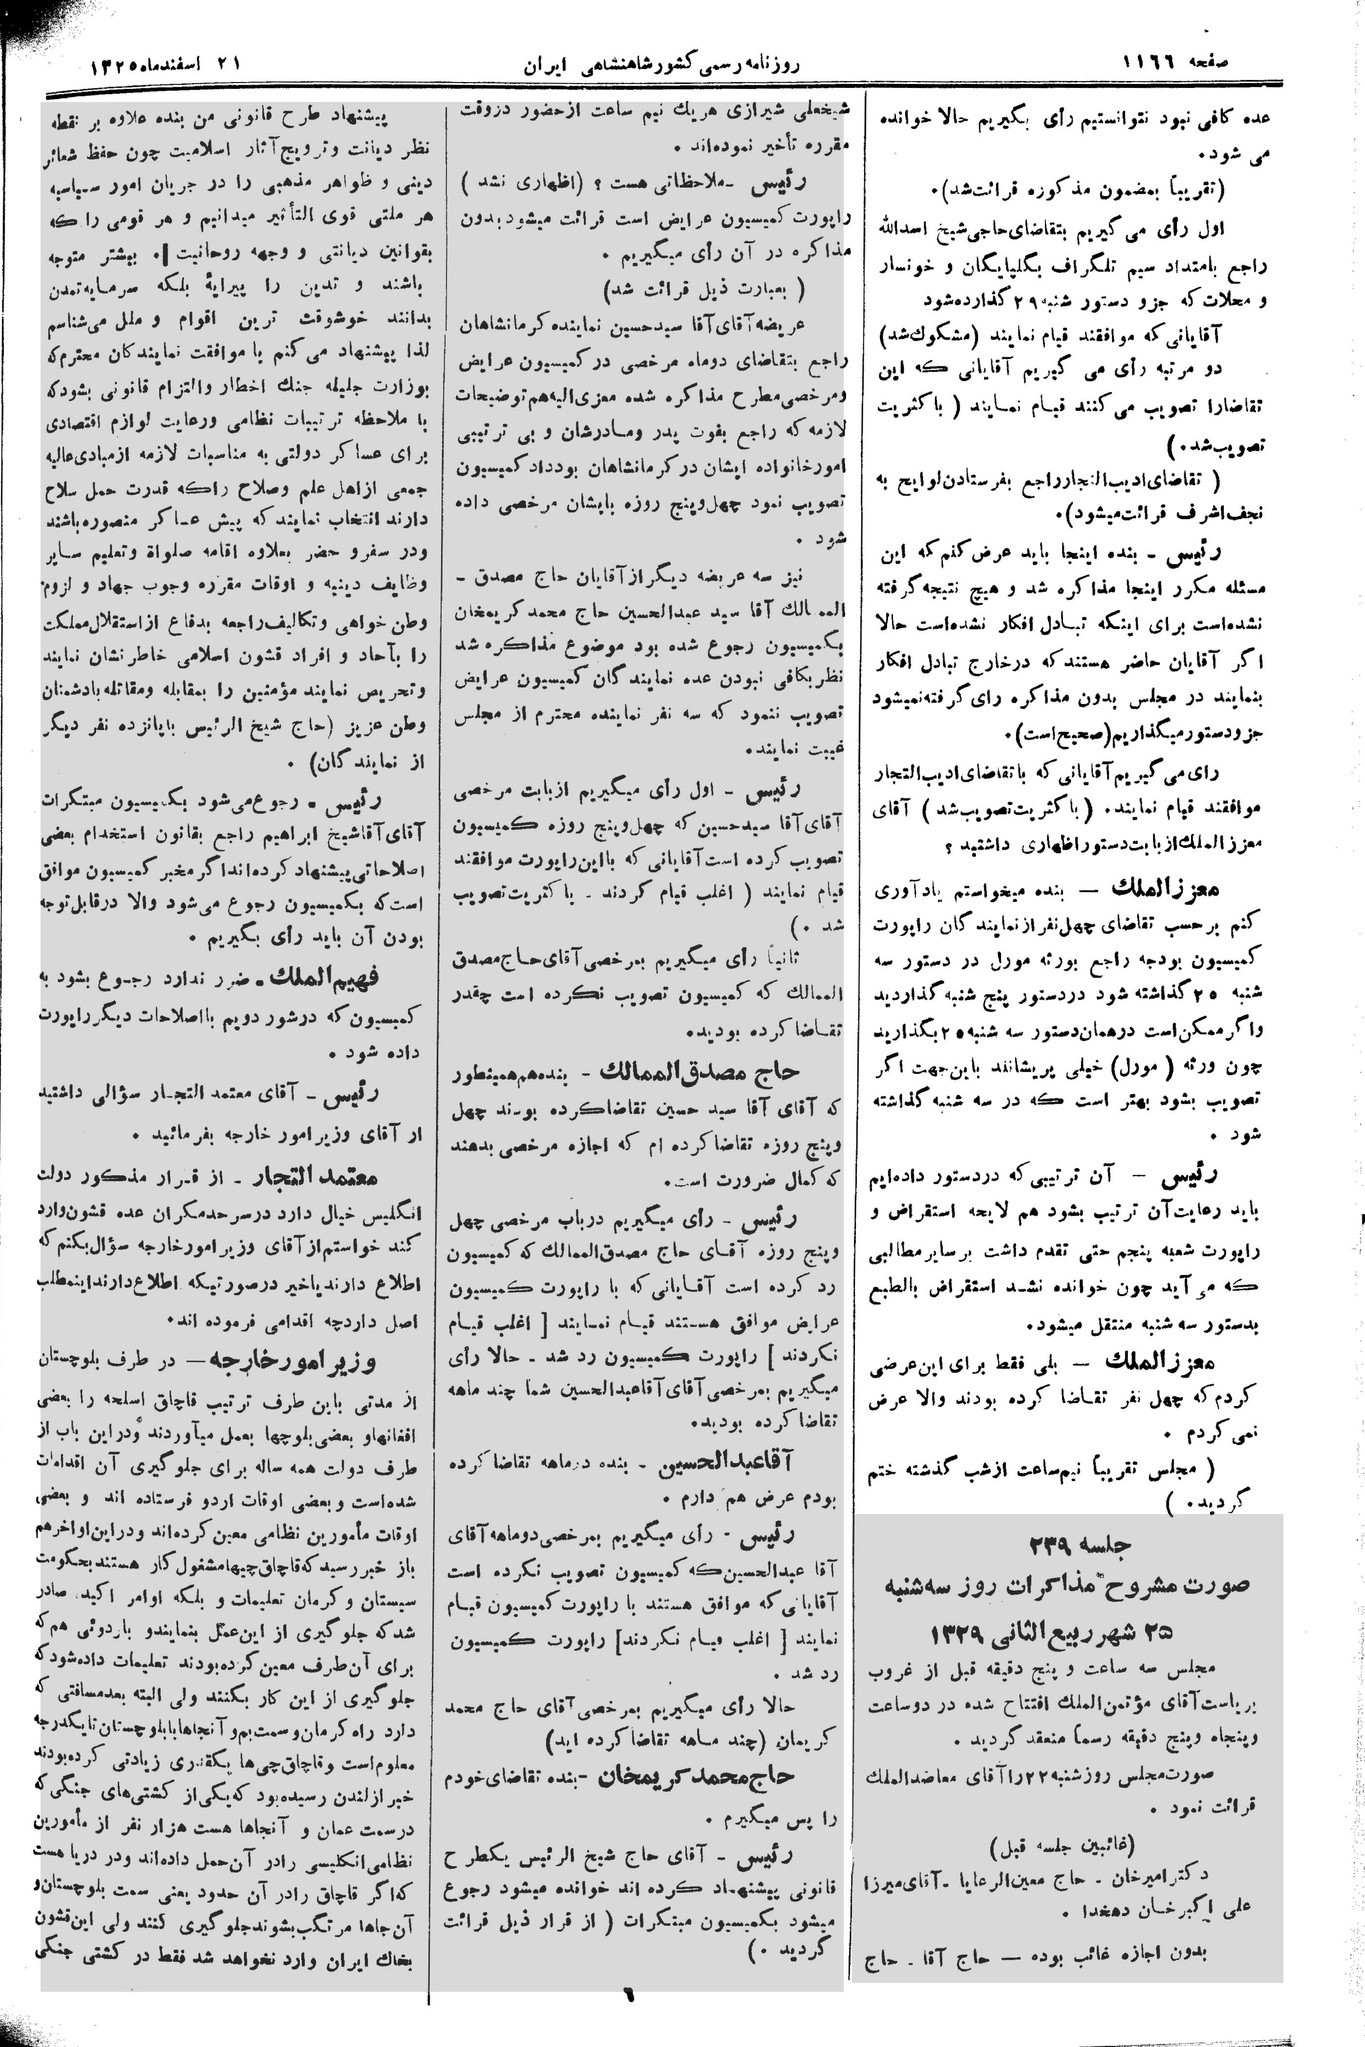 صفحه ۱۱۶۶
روزنامه رسمی کشور شاهنشاهی ایران
۲۱ اسفندماه ۱۳۲۵
عده کافی نبود نتوانستیم رأی بگیریم حالا خوانده
می شود.
(تقریباً بمضمون مذکوره قرائت شد).
اول رأی می گیریم بتقاضای حاجی شیخ اسدالله
راجع بامتداد سیم تلگراف بگلپایگان و خونسار
و محلات که جزو دستور شنبه ۲۹ گذارده شود
آقایانی که موافقند قیام نمایند (مشکوک شد)
دو مرتبه رأی می گیریم آقایانی که این
تقاضا را تصویب می کنند قیام نمایند ( باکثریت
تصویب شد.)
( تقاضای ادیب التجار راجع بفرستادن لوایح به
نجف اشرف قرائت میشود).
رئیس - بنده اینجا باید عرض کنم که این
مسئله مکرر اینجا مذاکره شد و هیچ نتیجه گرفته
نشده است برای اینکه تبادل افکار نشده است حالا
اگر آقایان حاضر هستند که در خارج تبادل افکار
بنمایند در مجلس بدون مذاکره رای گرفته نمیشود
جزو دستور میگذاریم (صحیح است).
رای می گیریم آقایانی که با تقاضای ادیب التجار
موافقند قیام نمایند. ( باکثریت تصویب شد ) آقای
معزز الملک از بابت دستور اظهاری داشتید ؟
معزز الملک — بنده میخواستم یادآوری
کنم بر حسب تقاضای چهل نفر از نمایندگان راپورت
کمیسیون بودجه راجع بورثه مورل در دستور سه
شنبه ۲۵ گذاشته شود در دستور پنج شنبه گذاردید
و اگر ممکن است در همان دستور سه شنبه ۲۵ بگذارید
چون ورثه ( مورل) خیلی پریشانند باین جهت اگر
تصویب بشود بهتر است که در سه شنبه گذاشته
شود .
رئیس — آن ترتیبی که در دستور داده ایم
باید رعایت آن ترتیب بشود هم لایحه استقراض و
راپورت شعبه پنجم حتی تقدم داشت بر سایر مطالبی
که می آید چون خوانده نشد استقراض بالطبع
بدستور سه شنبه منتقل میشود.
معزز الملک — بلی فقط برای این عرضی
کردم که چهل نفر تقاضا کرده بودند والا عرض
نمی کردم .
( مجلس تقریباً نیم ساعت از شب گذشته ختم
گردید. )
جلسه ۲۳۹
صورت مشروح مذاکرات روز سه شنبه
۲۵ شهر ربیع الثانی ۱۳۲۹
مجلس سه ساعت و پنج دقیقه قبل از غروب
بریاست آقای مؤتمن الملک افتتاح شده در دو ساعت
و پنجاه و پنج دقیقه رسماً منعقد گردید .
صورت مجلس روز شنبه ۲۲ را آقای معاضد الملک
قرائت نمود .
(غائبین جلسه قبل)
دکتر امیرخان - حاج معین الرعایا - آقای میرزا
علی اکبر خان دهخدا .
بدون اجازه غائب بوده — حاج آقا - حاج
شیخعلی شیرازی هریک نیم ساعت از حضور در وقت
مقرره تأخیر نموده اند .
رئیس - ملاحظاتی هست ؟ (اظهاری نشد )
راپورت کمیسیون عرایض است قرائت میشود بدون
مذاکره در آن رأی میگیریم .
( بعبارت ذیل قرائت شد)
عریضه آقای آقا سید حسین نماینده کرمانشاهان
راجع بتقاضای دو ماه مرخصی در کمیسیون عرایض
و مرخصی مطرح مذاکره شده معزی الیه هم توضیحات
لازمه که راجع بفوت پدر و مادرشان و بی ترتیبی
امور خانواده ایشان در کرمانشاهان بود داد کمیسیون
تصویب نمود چهل و پنج روزه بایشان مرخصی داده
شود .
نیز سه عریضه دیگر از آقایان حاج مصدق -
الممالک آقا سید عبدالحسین حاج محمد کریمخان
بکمیسیون رجوع شده بود موضوع مذاکره شد
نظر بکافی نبودن عده نمایندگان کمیسیون عرایض
تصویب ننمود که سه نفر نماینده محترم از مجلس
غیبت نمایند.
رئیس - اول رأی میگیریم از بابت مرخصی
آقای آقا سید حسین که چهل و پنج روزه کمیسیون
تصویب کرده است آقایانی که با این راپورت موافقند
قیام نمایند ( اغلب قیام کردند - باکثریت تصویب
شد .)
ثانیاً رأی میگیریم بمرخصی آقای حاج مصدق
الممالک که کمیسیون تصویب نکرده است چقدر
تقاضا کرده بودید.
حاج مصدق الممالک - بنده هم همینطور
که آقای آقا سید حسین تقاضا کرده بودند چهل
و پنج روزه تقاضا کرده ام که اجازه مرخصی بدهند
که کمال ضرورت است.
رئیس - رأی میگیریم در باب مرخصی چهل
و پنج روزه آقای حاج مصدق الممالک که کمیسیون
رد کرده است آقایانی که با راپورت کمیسیون
عرایض موافق هستند قیام نمایند [ اغلب قیام
نکردند ] راپورت کمیسیون رد شد - حالا رأی
میگیریم بمرخصی آقای آقا عبدالحسین شما چند ماهه
تقاضا کرده بودید.
آقا عبدالحسین - بنده دو ماهه تقاضا کرده
بودم عرض هم دارم .
رئیس - رأی میگیریم بمرخصی دو ماهه آقای
آقا عبدالحسین که کمیسیون تصویب نکرده است
آقایانی که موافق هستند با راپورت کمیسیون قیام
نمایند [ اغلب قیام نکردند] راپورت کمیسیون
رد شد .
حالا رأی میگیریم بمرخصی آقای حاج محمد
کریمان (چند ماهه تقاضا کرده اید)
حاج محمد کریمخان - بنده تقاضای خودم
را پس میگیرم .
رئیس - آقای حاج شیخ الرئیس یک طرح
قانونی پیشنهاد کرده اند خوانده میشود رجوع
میشود بکمیسیون مبتکرات ( از قرار ذیل قرائت
گردید .)
پیشنهاد طرح قانونی من بنده علاوه بر نقطه
نظر دیانت و ترویج آثار اسلامیت چون حفظ شعائر
دینی و ظواهر مذهبی را در جریان امور سیاسیه
هر ملتی قوی التأثیر میدانیم و هر قومی را که
بقوانین دیانتی و وجهه روحانیت . بیشتر متوجه
باشند و تدین را پیرایهٔ بلکه سرمایه تمدن
بدانند خوشوقت ترین اقوام و ملل می شناسم
لذا پیشنهاد می کنم با موافقت نمایندگان محترم که
بوزارت جلیله جنگ اخطار و التزام قانونی بشود که
با ملاحظه ترتیبات نظامی و رعایت لوازم اقتصادی
برای عساکر دولتی به مناسبات لازمه از مبادی عالیه
جمعی از اهل علم و صلاح را که قدرت حمل سلاح
دارند انتخاب نمایند که پیش عساکر منصوره باشند
و در سفر و حضر بعلاوه اقامه صلواة و تعلیم سایر
وظایف دینیه و اوقات مقرره وجوب جهاد و لزوم
وطن خواهی و تکالیف راجعه بدفاع از استقلال مملکت
را بآحاد و افراد قشون اسلامی خاطر نشان نمایند
و تحریص نمایند مؤمنین را بمقابله و مقاتله با دشمنان
وطن عزیز (حاج شیخ الرئیس با پانزده نفر دیگر
از نمایندگان) .
رئیس - رجوع می شود بکمیسیون مبتکرات
آقای آقا شیخ ابراهیم راجع بقانون استخدام بعضی
اصلاحاتی پیشنهاد کرده اند اگر مخبر کمیسیون موافق
است که بکمیسیون رجوع می شود والا در قابل توجه
بودن آن باید رأی بگیریم .
فهیم الملک - ضرر ندارد رجوع بشود به
کمیسیون که در شور دویم با اصلاحات دیگر راپورت
داده شود .
رئیس - آقای معتمد التجار سؤالی داشتید
از آقای وزیر امور خارجه بفرمائید .
معتمد التجار - از قرار مذکور دولت
انگلیس خیال دارد در سرحد مکران عده قشون وارد
کند خواستم از آقای وزیر امور خارجه سؤال بکنم که
اطلاع دارند یا خیر در صورتیکه اطلاع دارند اینمطلب
اصل دارد چه اقدامی فرموده اند.
وزیر امور خارجه — در طرف بلوچستان
از مدتی باین طرف ترتیب قاچاق اسلحه را بعضی
افغانها و بعضی بلوچها بعمل میآوردند و در این باب از
طرف دولت همه ساله برای جلوگیری آن اقدامات
شده است و بعضی اوقات اردو فرستاده اند و بعضی
اوقات مأمورین نظامی معین کرده اند و در این اواخر هم
باز خبر رسید که قاچاق چیها مشغول کار هستند بحکومت
سیستان و کرمان تعلیمات و بلکه اوامر اکید صادر
شد که جلوگیری از این عمل بنمایند و باردوئی هم که
برای آن طرف معین کرده بودند تعلیمات داده شود که
جلوگیری از این کار بکنند ولی البته بعد مسافتی که
دارد راه کرمان و سمت بم و آنجاها با بلوچستان تا یکدرجه
معلوم است و قاچاق چی ها یکقدری زیادتی کرده بودند
خبر از لندن رسیده بود که یکی از کشتی های جنگی که
در سمت عمان و آنجاها هست هزار نفر از مأمورین
نظامی انگلیسی را در آن حمل داده اند و در دریا هست
که اگر قاچاق را در آن حدود یعنی سمت بلوچستان و
آن جاها مرتکب بشوند جلوگیری کنند ولی این قشون
بخاک ایران وارد نخواهد شد فقط در کشتی جنگی
۶